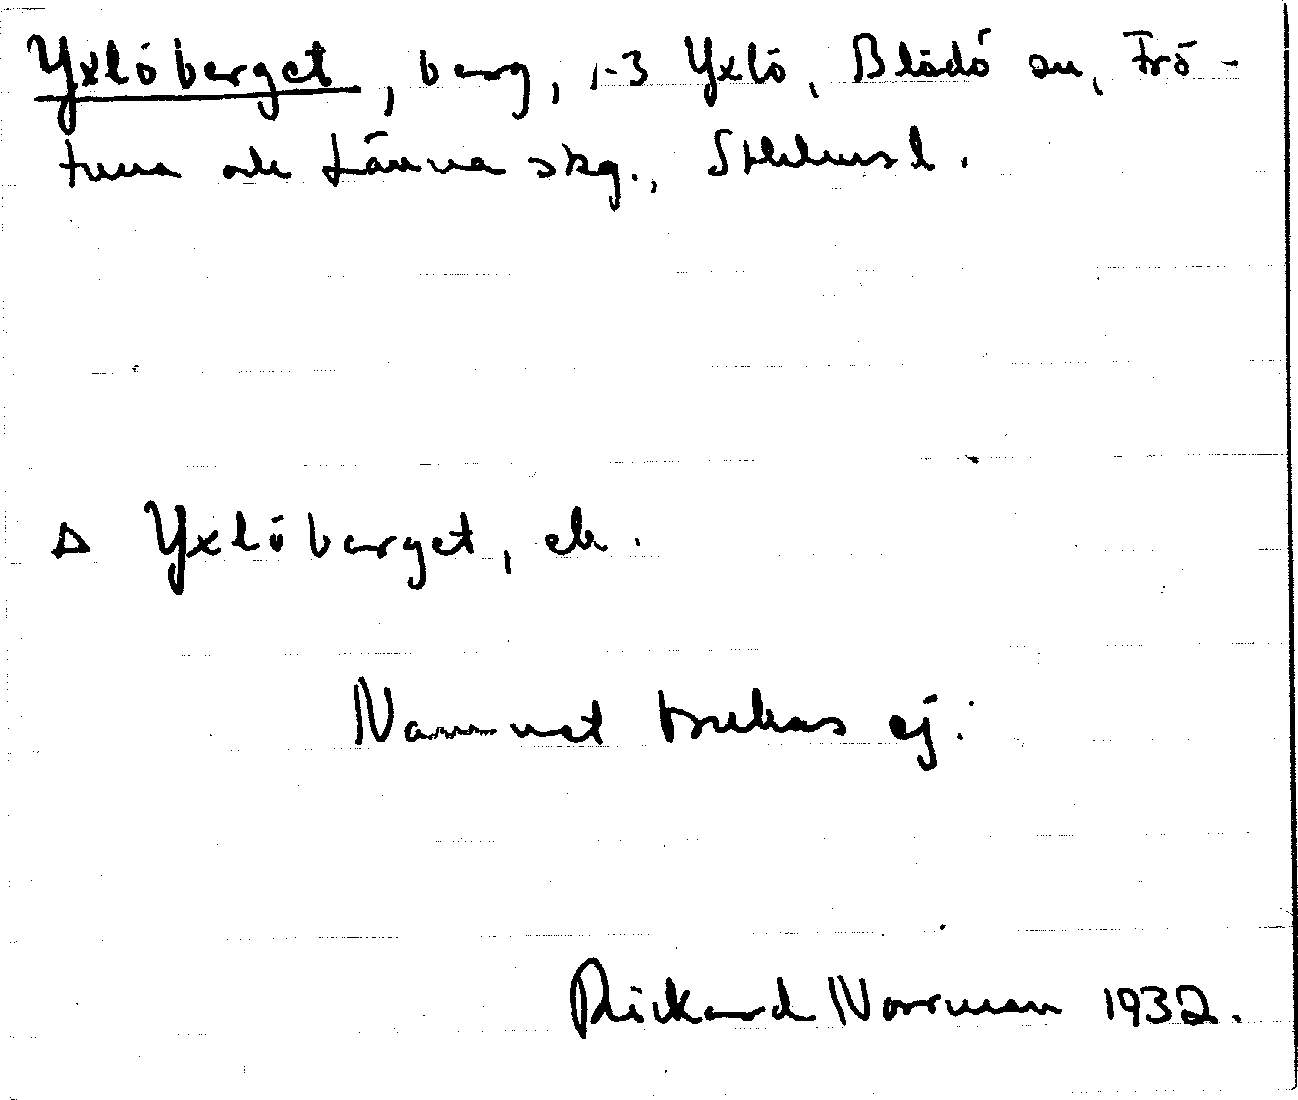 Yxlöberget, berg, 1-3 Yxlö, Blådö sn, Frö-
tuna och Länna skg., Sthlms l.
Δ Yxlöberget, ek.
Namnet brukas ej.
Rickard Norrman 1932.